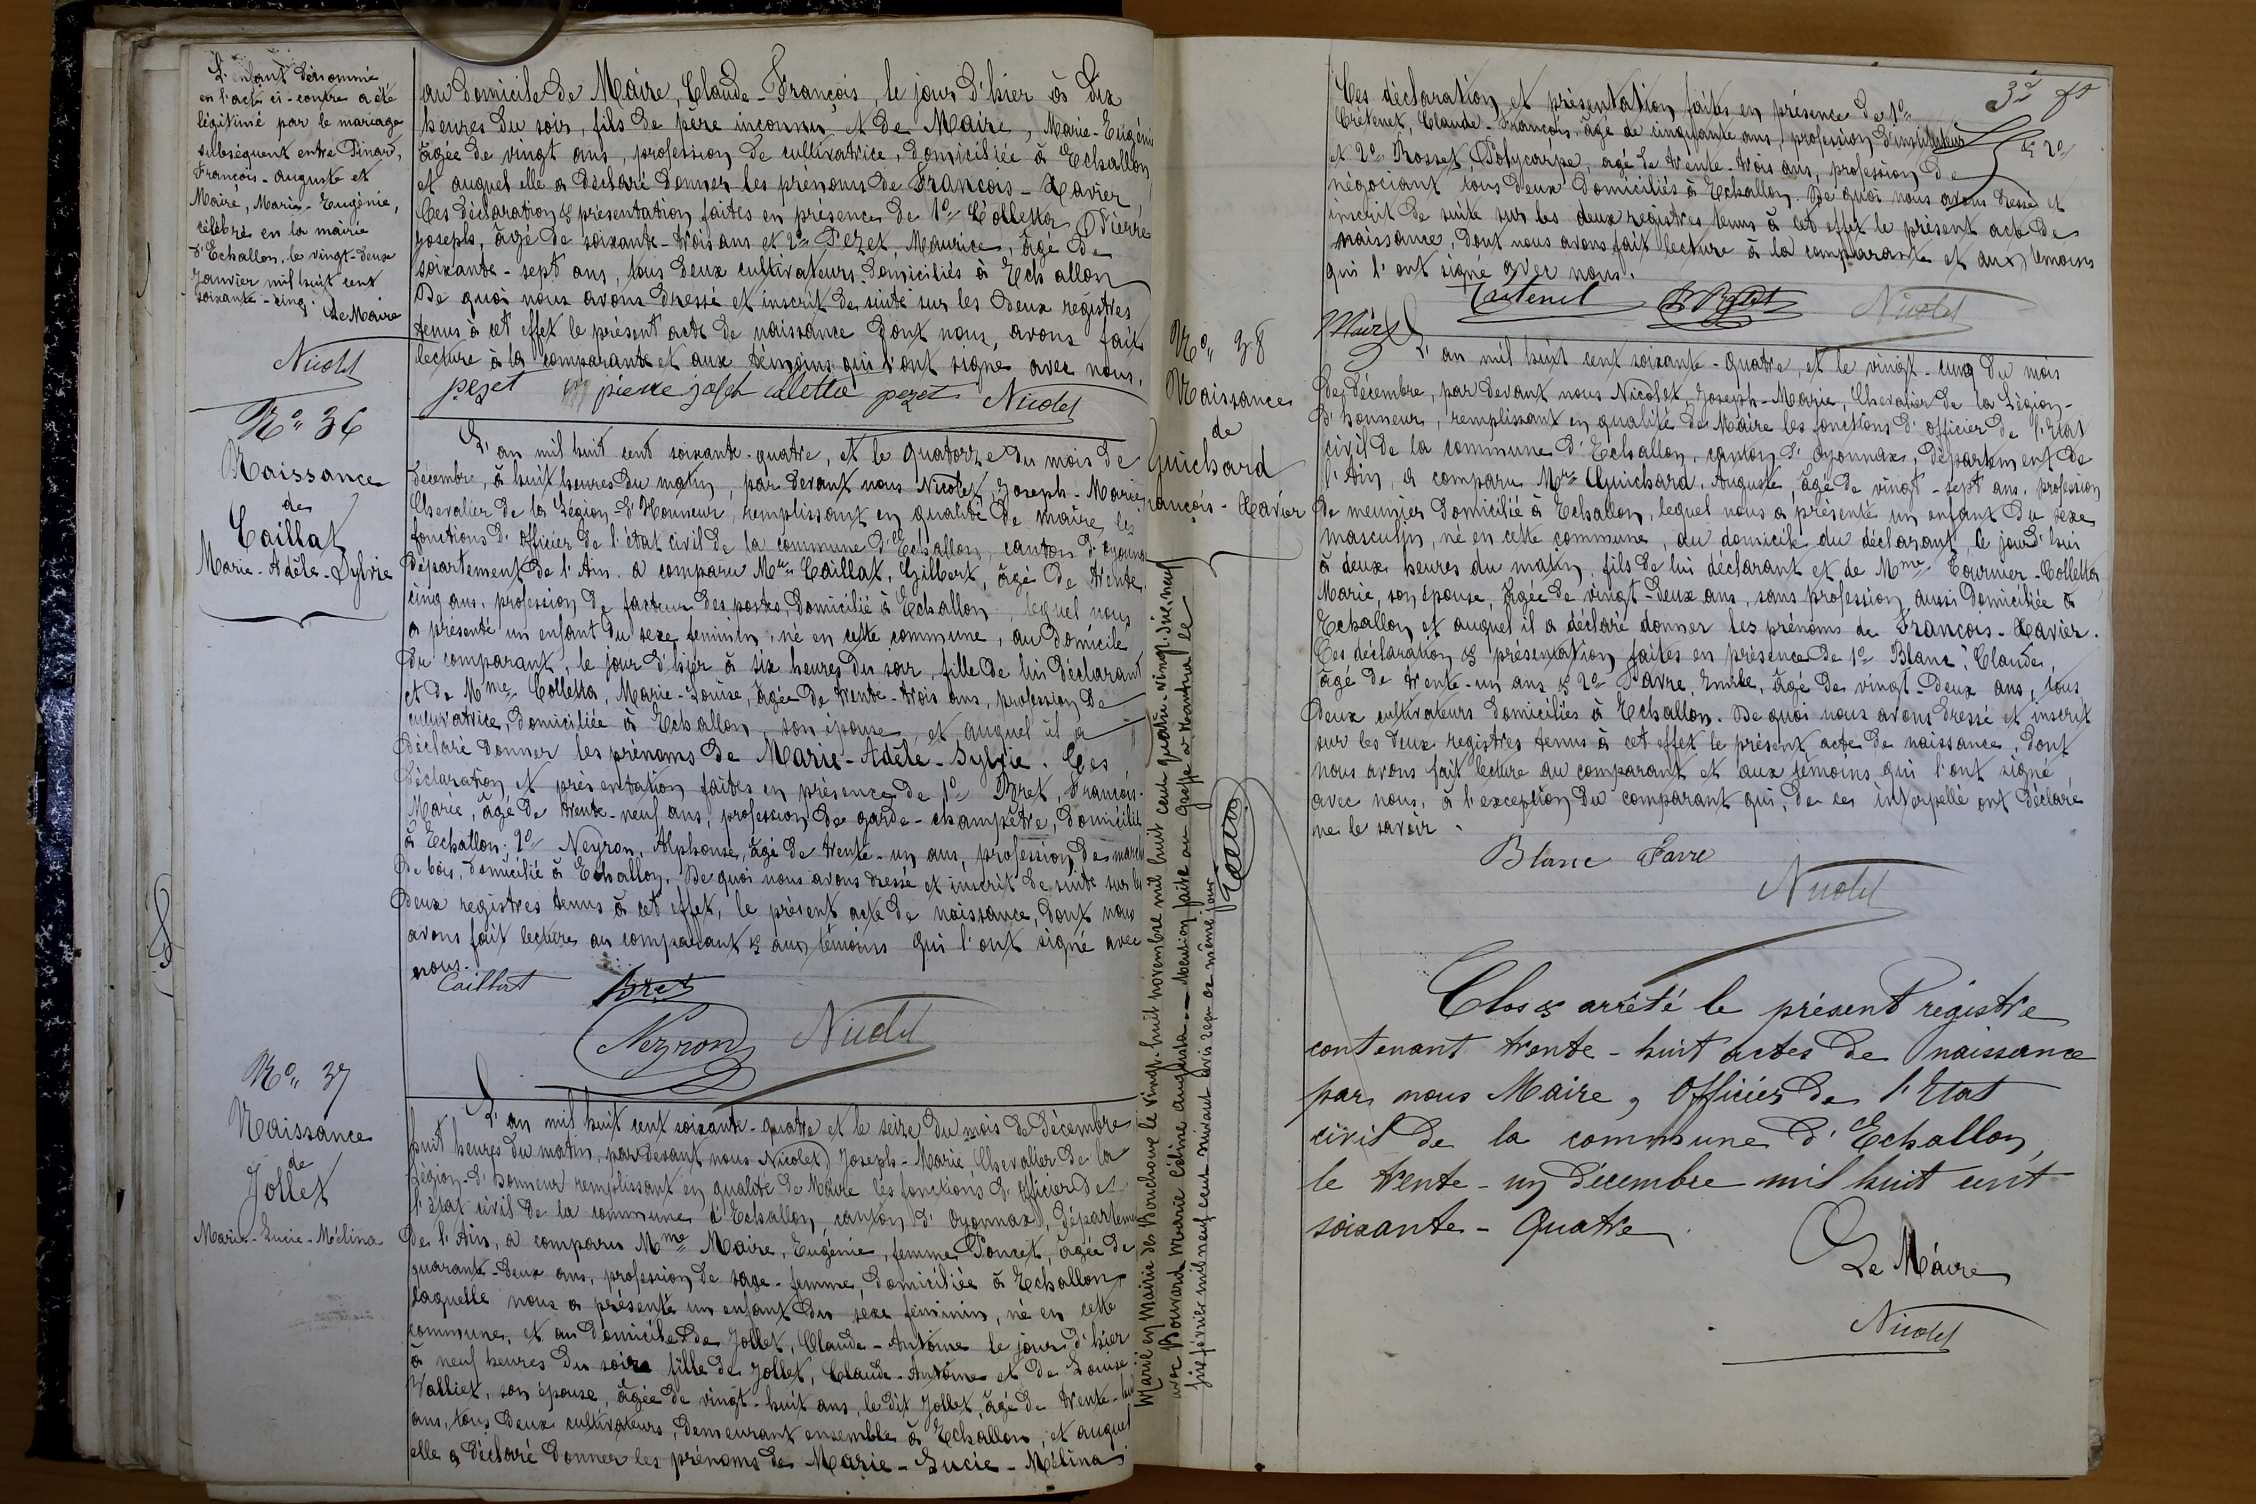 L'enfant dénommé
en l'acte ci-contre a été
légitimé par le mariage
subséquent entre Pinard,
François-Auguste et
Maire, Marie-Eugénie,
célébré en la mairie
d'Echallon, le vingt-deux
Janvier mil huit cent
soixante-cinq. Le Maire
Nicolet
au domicile de Maire, Claude-François, le jour d'hier à dix
heures du soir, fils de père inconnu et de Maire, Marie-Eugénie
âgée de vingt ans, profession de cultivatrice, domiciliée à Echallon
et auquel elle a déclaré donner les prénoms de François-Xavier,
Ces déclaration & présentation faites en présence de 1° Colletta, Pierre
Joseph, âgé de soixante-trois ans et 2° Pezet, Maurice, âgé de
soixante-sept ans, tous deux cultivateurs domiciliés à Echallon
De quoi nous avons dressé et inscrit de suite sur les deux registres
tenus à cet effet le présent acte de naissance dont nous avons fait
lecture à la comparante et aux témoins qui l'ont signé avec nous.
pezet pierre josph colletta pezet Nicolet
N° 36
Naissance
de
Caillat
Marie-Adèle-Sylvie
L'an mil huit cent soixante-quatre, et le quatorze du mois de
décembre, à huit heures du matin, par devant nous Nicolet, Joseph-Marie
Chevalier de la Légion-d'Honneur, remplissant en qualité de maire les
fonctions d'officier de l'état civil de la commune d'Echallon, canton d'oyonnax
département de l'Ain. a comparu Mr Caillat, Gilbert, âgé de trente
cinq ans, profession de facteur des postes, domicilié à Echallon, lequel nous
a présenté un enfant du sexe féminin, né en cette commune, au domicile
du comparant, le jour d'hier à six heures du soir, fille de lui déclarant
et de Mme Colletta, Marie-Louise, âgée de trente-trois ans, profession de
cultivatrice, domiciliée à Echallon, son épouse, et auquel il a
déclaré donner les prénoms de Marie-Adèle-Sylvie. Ces
déclaration et présentation faites en présence de 1° Bret, François-
Marie, âgé de trente-neuf ans, profession de garde-champêtre, domicilié
à Echallon. 2° Neyron, Alphonse, âgé de trente-un ans, profession de march
de bois, domicilié à Echallon. De quoi nous avons dressé et inscrit de suite sur les
deux registres tenus à cet effet, le présent acte de naissance, dont nous
avons fait lecture au comparant & aux témoins qui l'ont signé avec
nous.
Caillat Bret
Neyron Nicolet
N° 37
Naissance
de
Jollet
Marie-Lucie-Mélina
L'an mil huit cent soixante-quatre et le seize du mois de décembre
huit heures du matin, par devant nous Nicolet, Joseph-Marie Chevalier de la
Légion-d'honneur remplissant en qualité de Maire les fonctions d'officier de
l'état civil de la commune d'Echallon, canton d'Oyonnax, départeme
de l'Ain, a comparu Mme Maire, Eugénie, femme Poncet, âgée de
quarante-deux ans, profession de sage-femme, domiciliée à Echallon
laquelle nous a présenté un enfant du sexe féminin, né en cette
commune, et au domicile de Jollet, Claude-Antoine le jour d'hier
à neuf heures du soir fille de Jollet, Claude-Antoine et de Louise
Valliet, son épouse, âgée de vingt-huit ans, le dit Jollet, âgé de trente-huit
ans, tous deux cultivateurs, demeurant ensemble à Echallon, et auquel
elle a déclaré donner les prénoms de Marie-Lucie-Mélina
3
Ces déclaration et présentation faites en présence de 1°
Crétenet, Claude-François, âgé de cinquante ans, profession d'instituteur
et 2° Rosset Polycarpe, âgé de trente-trois ans, profession de
négociant tous deux domiciliés à Echallon. De quoi nous avons dressé et
inscrit de suite sur les deux registres tenus à cet effet le présent acte de
naissance, dont nous avons fait lecture à la comparante et aux témoins
qui l'ont signé avec nous.
Nicolet
Maire
N° 38
Naissance
de
Guichard
François-Xavier
L'an mil huit cent soixante-quatre, et le vingt-cinq du mois
de décembre, par devant nous Nicolet, Joseph-Marie, Chevalier de la Légion-
d'honneur, remplissant en qualité de Maire les fonctions d'officier de l'Etat
civil de la commune d'Echallon, canton d'Oyonnax, département de
l'Ain, a comparu Mr Guichard, Auguste, âgé de vingt-sept ans, profession
de meunier domicilié à Echallon, lequel nous a présenté un enfant du sexe
masculin, né en cette commune, au domicile du déclarant, le jour d'hier
à deux heures du matin, fils de lui déclarant et de Mme Tournier-Colletta
Marie, son épouse, âgée de vingt-deux ans, sans profession, aussi domiciliée à
Echallon et auquel il a déclaré donner les prénoms de François-Xavier.
Ces déclaration & présentation faites en présence de 1° Blanc, Claude,
âgé de trente-un ans & 2° Favre, Emile, âgé de vingt-deux ans, tous
deux cultivateurs domiciliés à Echallon. De quoi nous avons dressé et inscrit
sur les deux registres tenus à cet effet le présent acte de naissance, dont
nous avons fait lecture au comparant et aux témoins qui l'ont signé
avec nous, à l'exception du comparant qui, de ce interpellé ont déclaré
ne le savoir.
Blanc Favre
Nicolet
Marié en Mairie des Bouchoux le vingt-huit novembre mil huit cent quatre-vingt-dix-neuf
avec Bouvard Marie Céline Augusta. — Mention faite au Greffe à Nantua le
six février mil neuf cent suivant avis reçu ce même jour
Clos & arrêté le présent régistre
contenant trente-huit actes de naissance
par nous Maire, Officier de l'Etat
civil de la commune d'Echallon,
le trente-un décembre mil huit cent
soixante-Quatre.
Le Maire
Nicolet